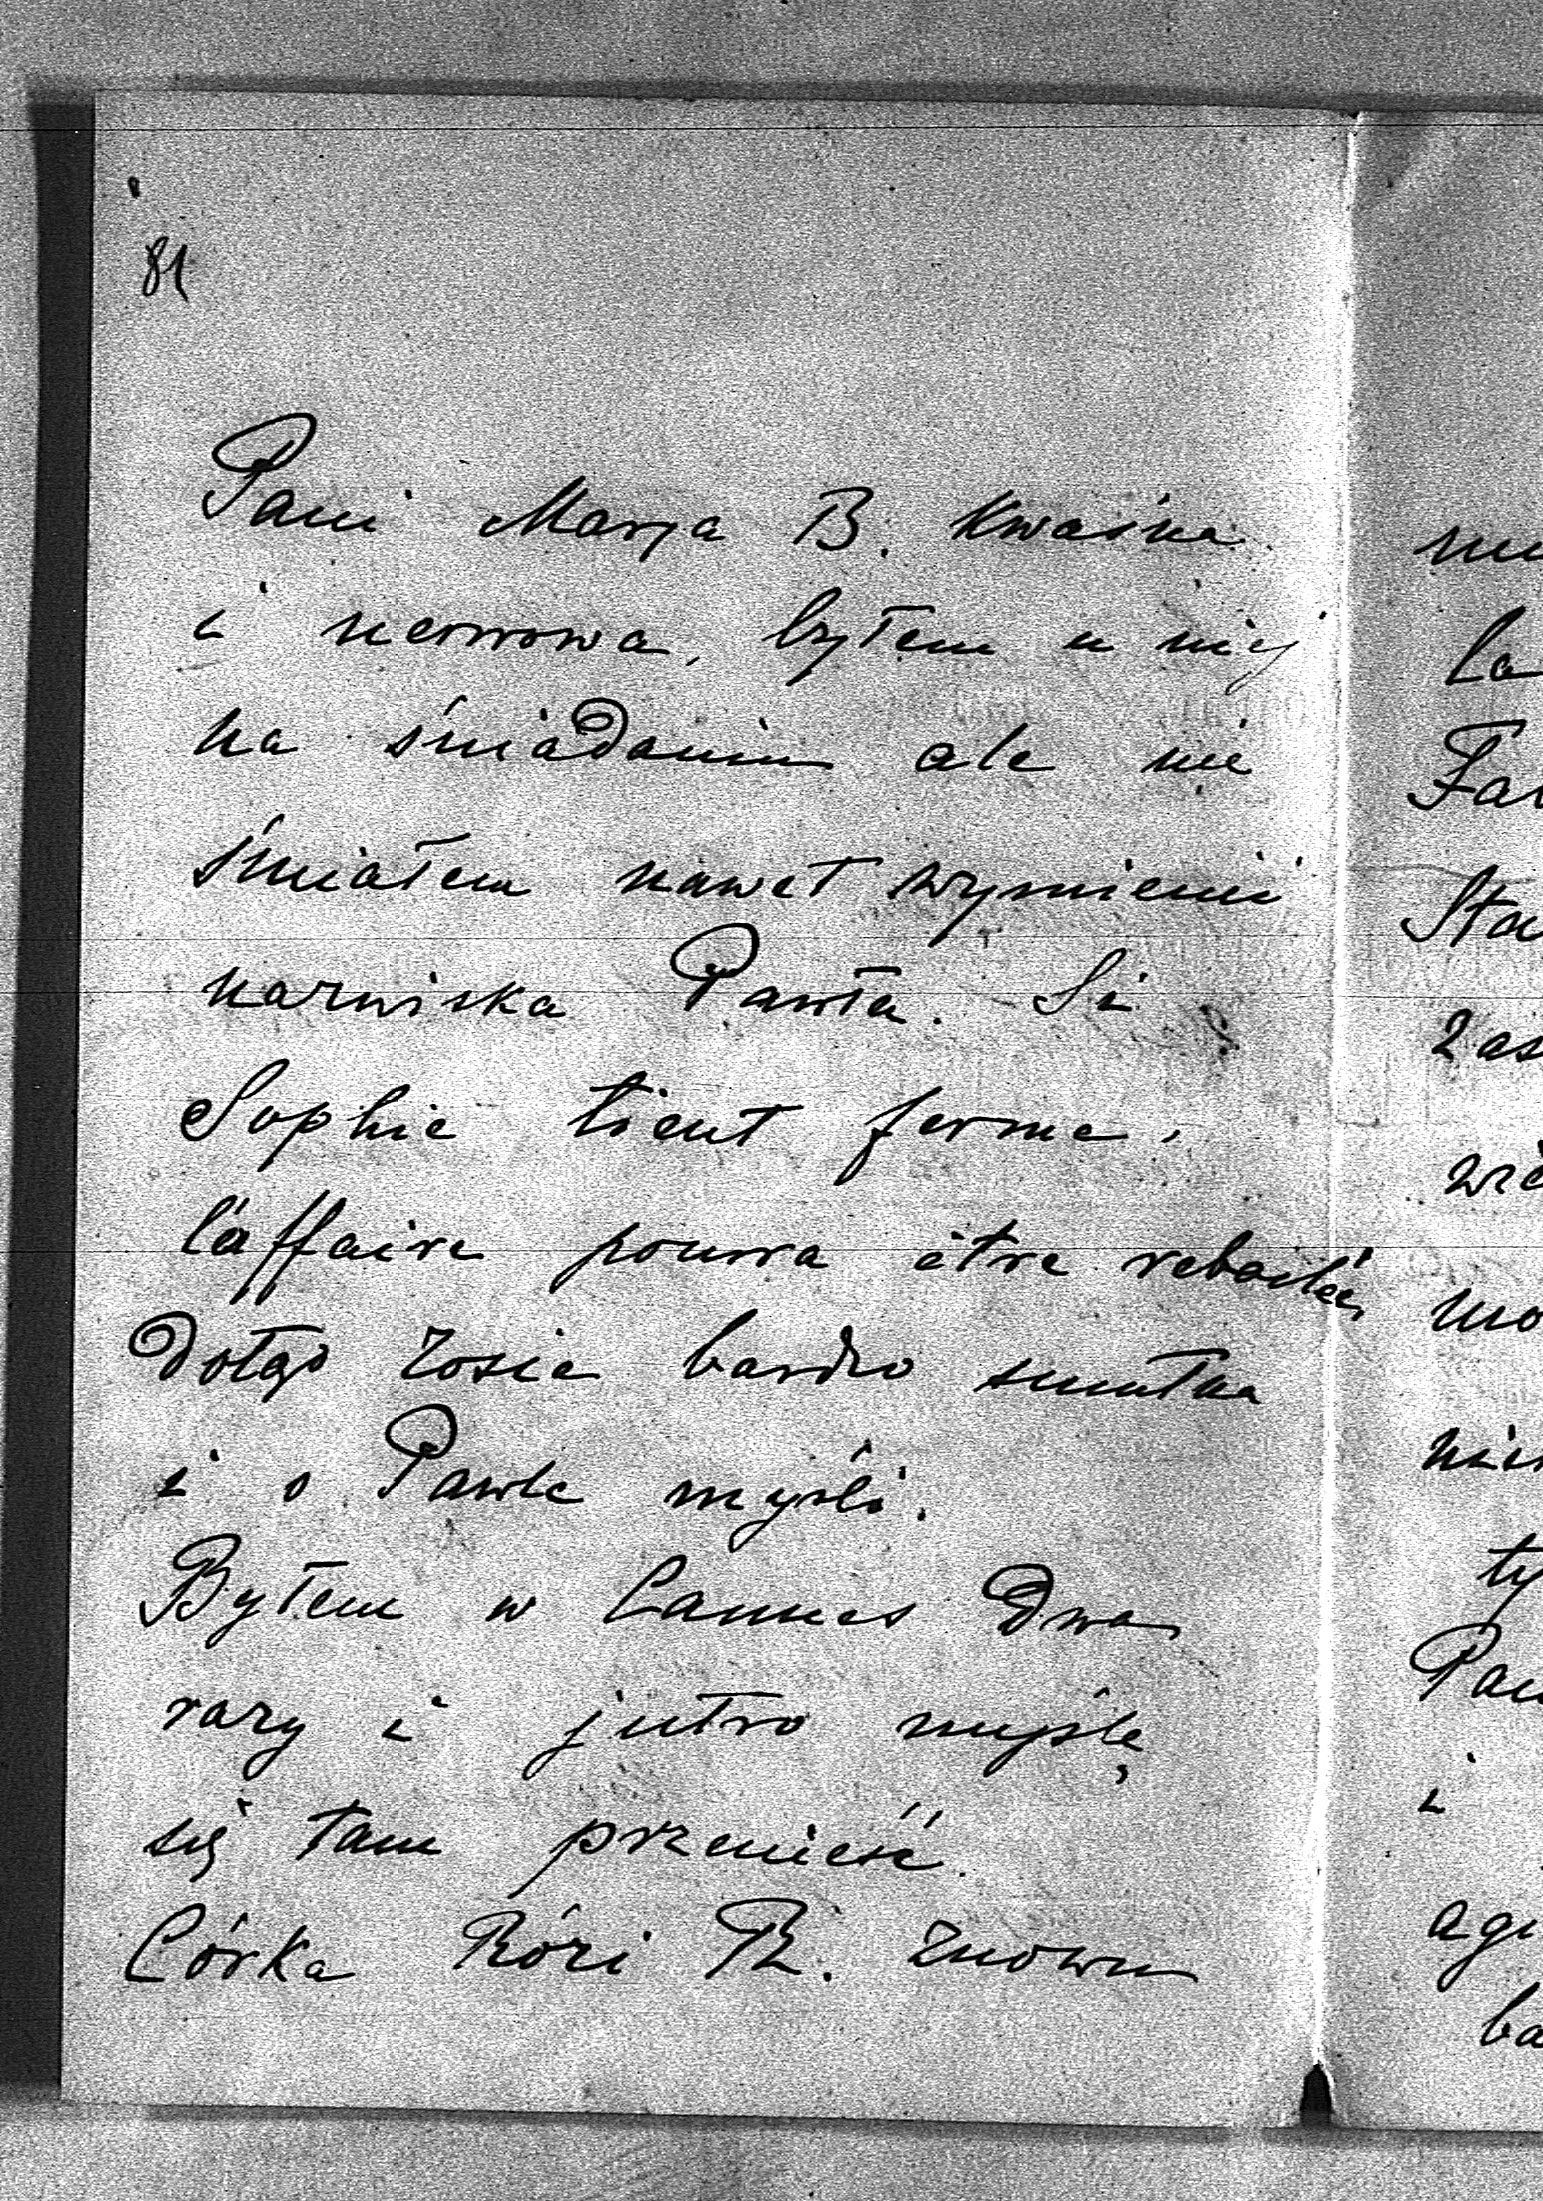 81
Pani Marja B. kwaśna
i nerwowa, byłem u niej
na śniadaniu ale nie
śmiałem nawet wymienić
nazwiska Pawła. Si
Sophie tient ferme,
l'affaire pourra être rebaclée,
Dotąd Zosia bardzo smutna
i o Pawle myśli.
Byłem w Cannes dwa
razy i jutro myślę
się tam przenieść.
Córka Rózi R. znowu
mu
La
Sta
zas
mo
ty
Pan
i
agi
ba